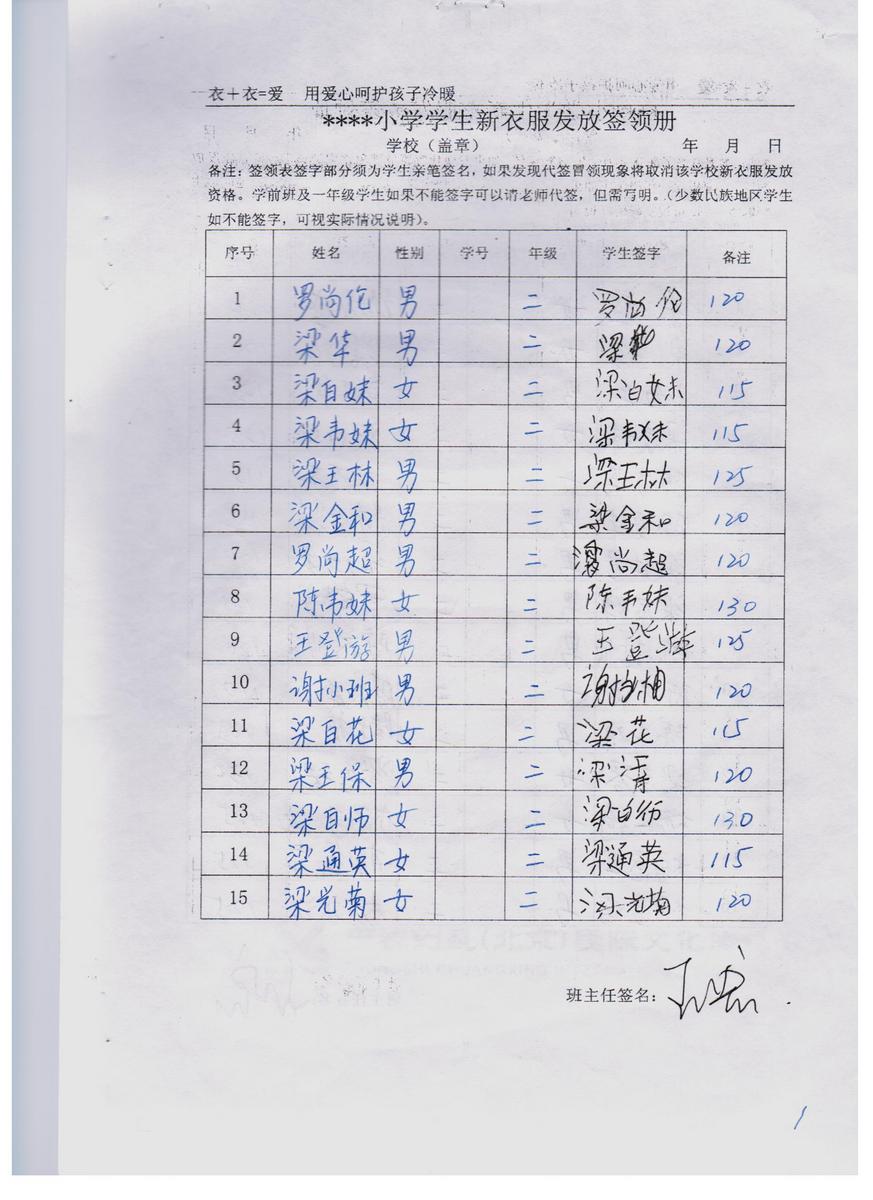 衣+衣=爱 用爱心呵护孩子冷暖
****小学学生新衣服发放签领册
学校（盖章） 年 月 日
备注：签领表签字部分须为学生亲笔签名，如果发现代签冒领现象将取消该学校新衣服发放
资格。学前班及一年级学生如果不能签字可以请老师代签，但需写明。（少数民族地区学生
如不能签字，可视实际情况说明）。
序号 姓名 性别 学号 年级 学生签字 备注
1 罗尚伦 男 二 罗尚伦 120
2 梁华 男 二 梁华 120
3 梁白妹 女 二 梁白妹 115
4 梁韦妹 女 二 梁韦妹 115
5 梁王林 男 二 梁王林 125
6 梁金和 男 二 梁金和 120
7 罗尚超 男 二 尚超 120
8 陈韦妹 女 二 陈韦妹 130
9 王登游 男 二 王登游 125
10 谢小班 男 二 谢 120
11 梁白花 女 二 梁花 115
12 梁王保 男 二 梁清 120
13 梁白师 女 二 梁白 130
14 梁通英 女 二 梁通英 115
15 梁光菊 女 二 梁光菊 120
班主任签名：
1